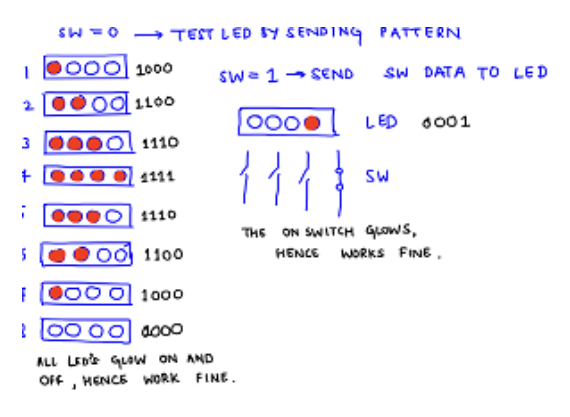 SW = 0 → TEST LED BY SENDING PATTERN
1 1000
2 1100
3 1110
4 1111
1110
1100
1000
0000
ALL LED'S GLOW ON AND
OFF, HENCE WORK FINE.
SW = 1 → SEND SW DATA TO LED
LED 0001
SW
THE ON SWITCH GLOWS,
HENCE WORKS FINE.